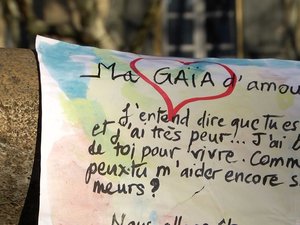 Ma GAÏA d'amou
J'entend dire que tu es
et j'ai très peur... J'ai b
de toi pour vivre. Comm
peux-tu m'aider encore s
meurs?